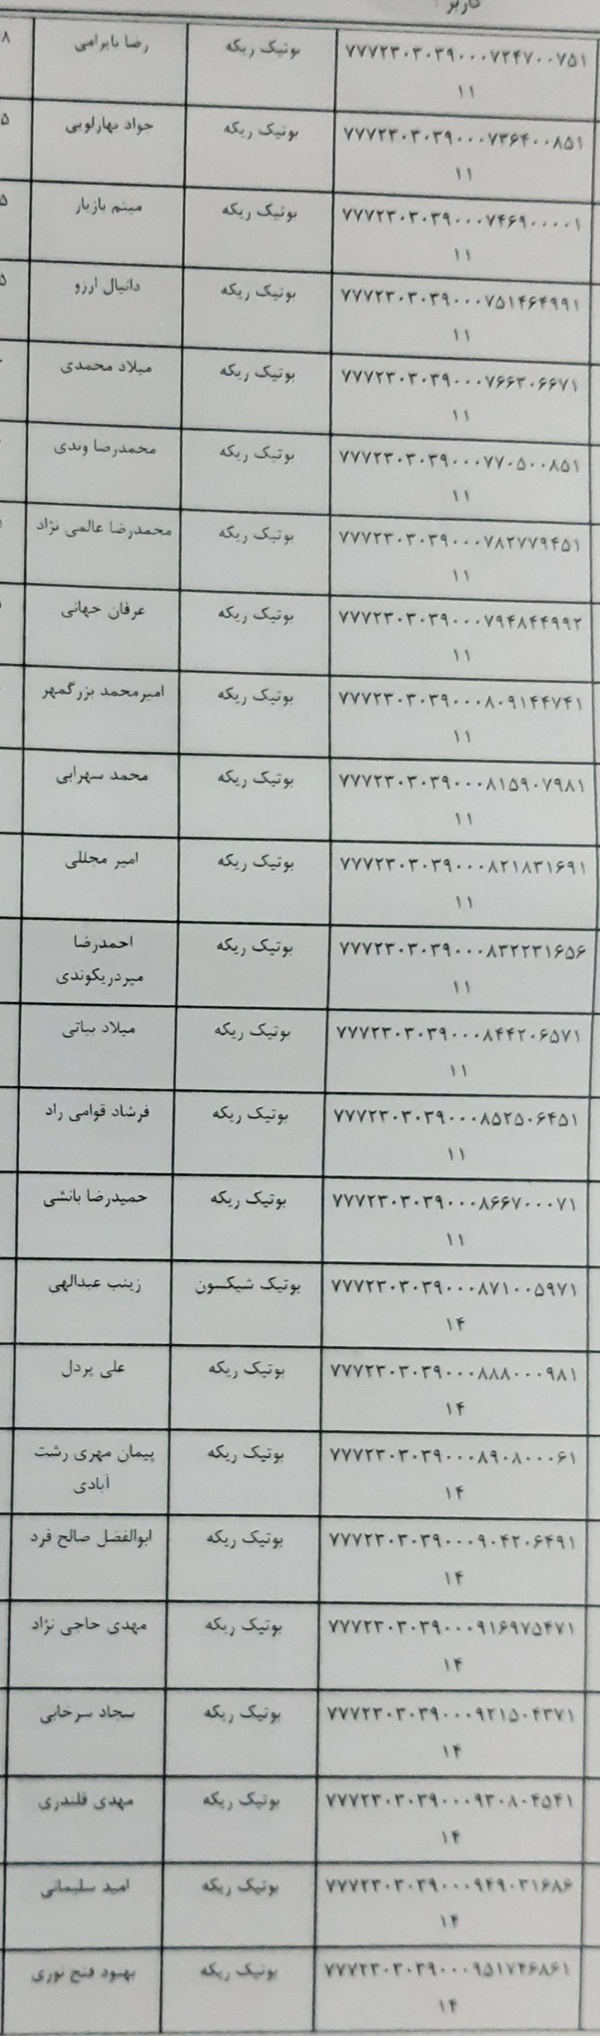 کاربر :
۷۷۷۲۳۰۳۰۳۹۰۰۰۷۲۴۷۰۰۷۵۱ بوتیک ریکه رضا بایرامی ۸
۱۱
۷۷۷۲۳۰۳۰۳۹۰۰۰۷۳۶۴۰۰۸۵۱ بوتیک ریکه جواد بهارلویی ۵
۱۱
۷۷۷۲۳۰۳۰۳۹۰۰۰۷۴۶۹۰۰۰۰۱ بوتیک ریکه میثم بازیار ۵
۱۱
۷۷۷۲۳۰۳۰۳۹۰۰۰۷۵۱۴۶۴۹۹۱ بوتیک ریکه دانیال ارزو ۵
۱۱
۷۷۷۲۳۰۳۰۳۹۰۰۰۷۶۶۳۰۶۶۷۱ بوتیک ریکه میلاد محمدی
۱۱
۷۷۷۲۳۰۳۰۳۹۰۰۰۷۷۰۵۰۰۸۵۱ بوتیک ریکه محمدرضا وندی
۱۱
۷۷۷۲۳۰۳۰۳۹۰۰۰۷۸۲۷۷۹۴۵۱ بوتیک ریکه محمدرضا عالمی نژاد
۱۱
۷۷۷۲۳۰۳۰۳۹۰۰۰۷۹۴۸۴۴۹۹۲ بوتیک ریکه عرفان جهانی
۱۱
۷۷۷۲۳۰۳۰۳۹۰۰۰۸۰۹۱۴۴۷۴۱ بوتیک ریکه امیرمحمد بزرگمهر
۱۱
۷۷۷۲۳۰۳۰۳۹۰۰۰۸۱۵۹۰۷۹۸۱ بوتیک ریکه محمد سهرابی
۱۱
۷۷۷۲۳۰۳۰۳۹۰۰۰۸۲۱۸۳۱۶۹۱ بوتیک ریکه امیر مجللی
۱۱
۷۷۷۲۳۰۳۰۳۹۰۰۰۸۳۲۲۳۱۶۵۶ بوتیک ریکه احمدرضا
۱۱ میردریکوندی
۷۷۷۲۳۰۳۰۳۹۰۰۰۸۴۴۲۰۶۵۷۱ بوتیک ریکه میلاد بیاتی
۱۱
۷۷۷۲۳۰۳۰۳۹۰۰۰۸۵۲۵۰۶۴۵۱ بوتیک ریکه فرشاد قوامی راد
۱۱
۷۷۷۲۳۰۳۰۳۹۰۰۰۸۶۶۷۰۰۰۷۱ بوتیک ریکه حمیدرضا بانشی
۱۱
۷۷۷۲۳۰۳۰۳۹۰۰۰۸۷۱۰۰۵۹۷۱ بوتیک شیکسون زینب عبدالهی
۱۴
۷۷۷۲۳۰۳۰۳۹۰۰۰۸۸۸۰۰۰۹۸۱ بوتیک ریکه علی پردل
۱۴
۷۷۷۲۳۰۳۰۳۹۰۰۰۸۹۰۸۰۰۰۶۱ بوتیک ریکه پیمان مهری رشت
۱۴ آبادی
۷۷۷۲۳۰۳۰۳۹۰۰۰۹۰۴۲۰۶۴۹۱ بوتیک ریکه ابوالفضل صالح فرد
۱۴
۷۷۷۲۳۰۳۰۳۹۰۰۰۹۱۶۹۷۵۴۷۱ بوتیک ریکه مهدی حاجی نژاد
۱۴
۷۷۷۲۳۰۳۰۳۹۰۰۰۹۲۱۵۰۴۳۷۱ بوتیک ریکه سجاد سرخابی
۱۴
۷۷۷۲۳۰۳۰۳۹۰۰۰۹۳۰۸۰۴۵۴۱ بوتیک ریکه مهدی قلندری
۱۴
۷۷۷۲۳۰۳۰۳۹۰۰۰۹۴۹۰۳۱۶۸۶ بوتیک ریکه امید سلیمانی
۱۴
۷۷۷۲۳۰۳۰۳۹۰۰۰۹۵۱۷۴۶۸۶۱ بوتیک ریکه بهبود فتح نوری
۱۴